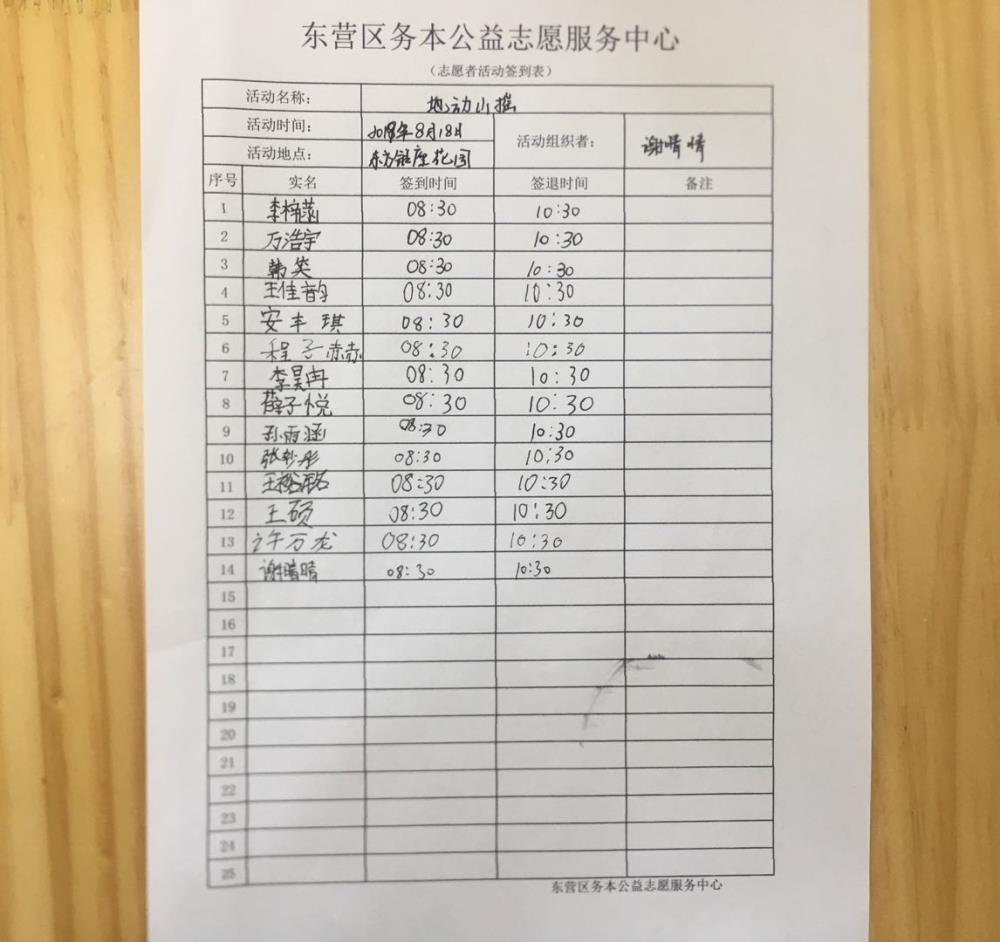 东营区务本公益志愿服务中心
（志愿者活动签到表）
活动名称： 地动山摇
活动时间： 2018年8月18日 活动组织者： 谢晴晴
活动地点： 东方银座花园
序号 实名 签到时间 签退时间 备注
1 李梓菡 08:30 10:30
2 万浩宇 08:30 10:30
3 韩笑 08:30 10:30
4 王佳韵 08:30 10:30
5 安丰琪 08:30 10:30
6 程子赫 08:30 10:30
7 李昊冉 08:30 10:30
8 薛子悦 08:30 10:30
9 孙雨涵 08:30 10:30
10 张 彤 08:30 10:30
11 王 08:30 10:30
12 王硕 08:30 10:30
13 许万龙 08:30 10:30
14 谢晴晴 08:30 10:30
15
16
17
18
19
20
21
22
23
24
25
东营区务本公益志愿服务中心